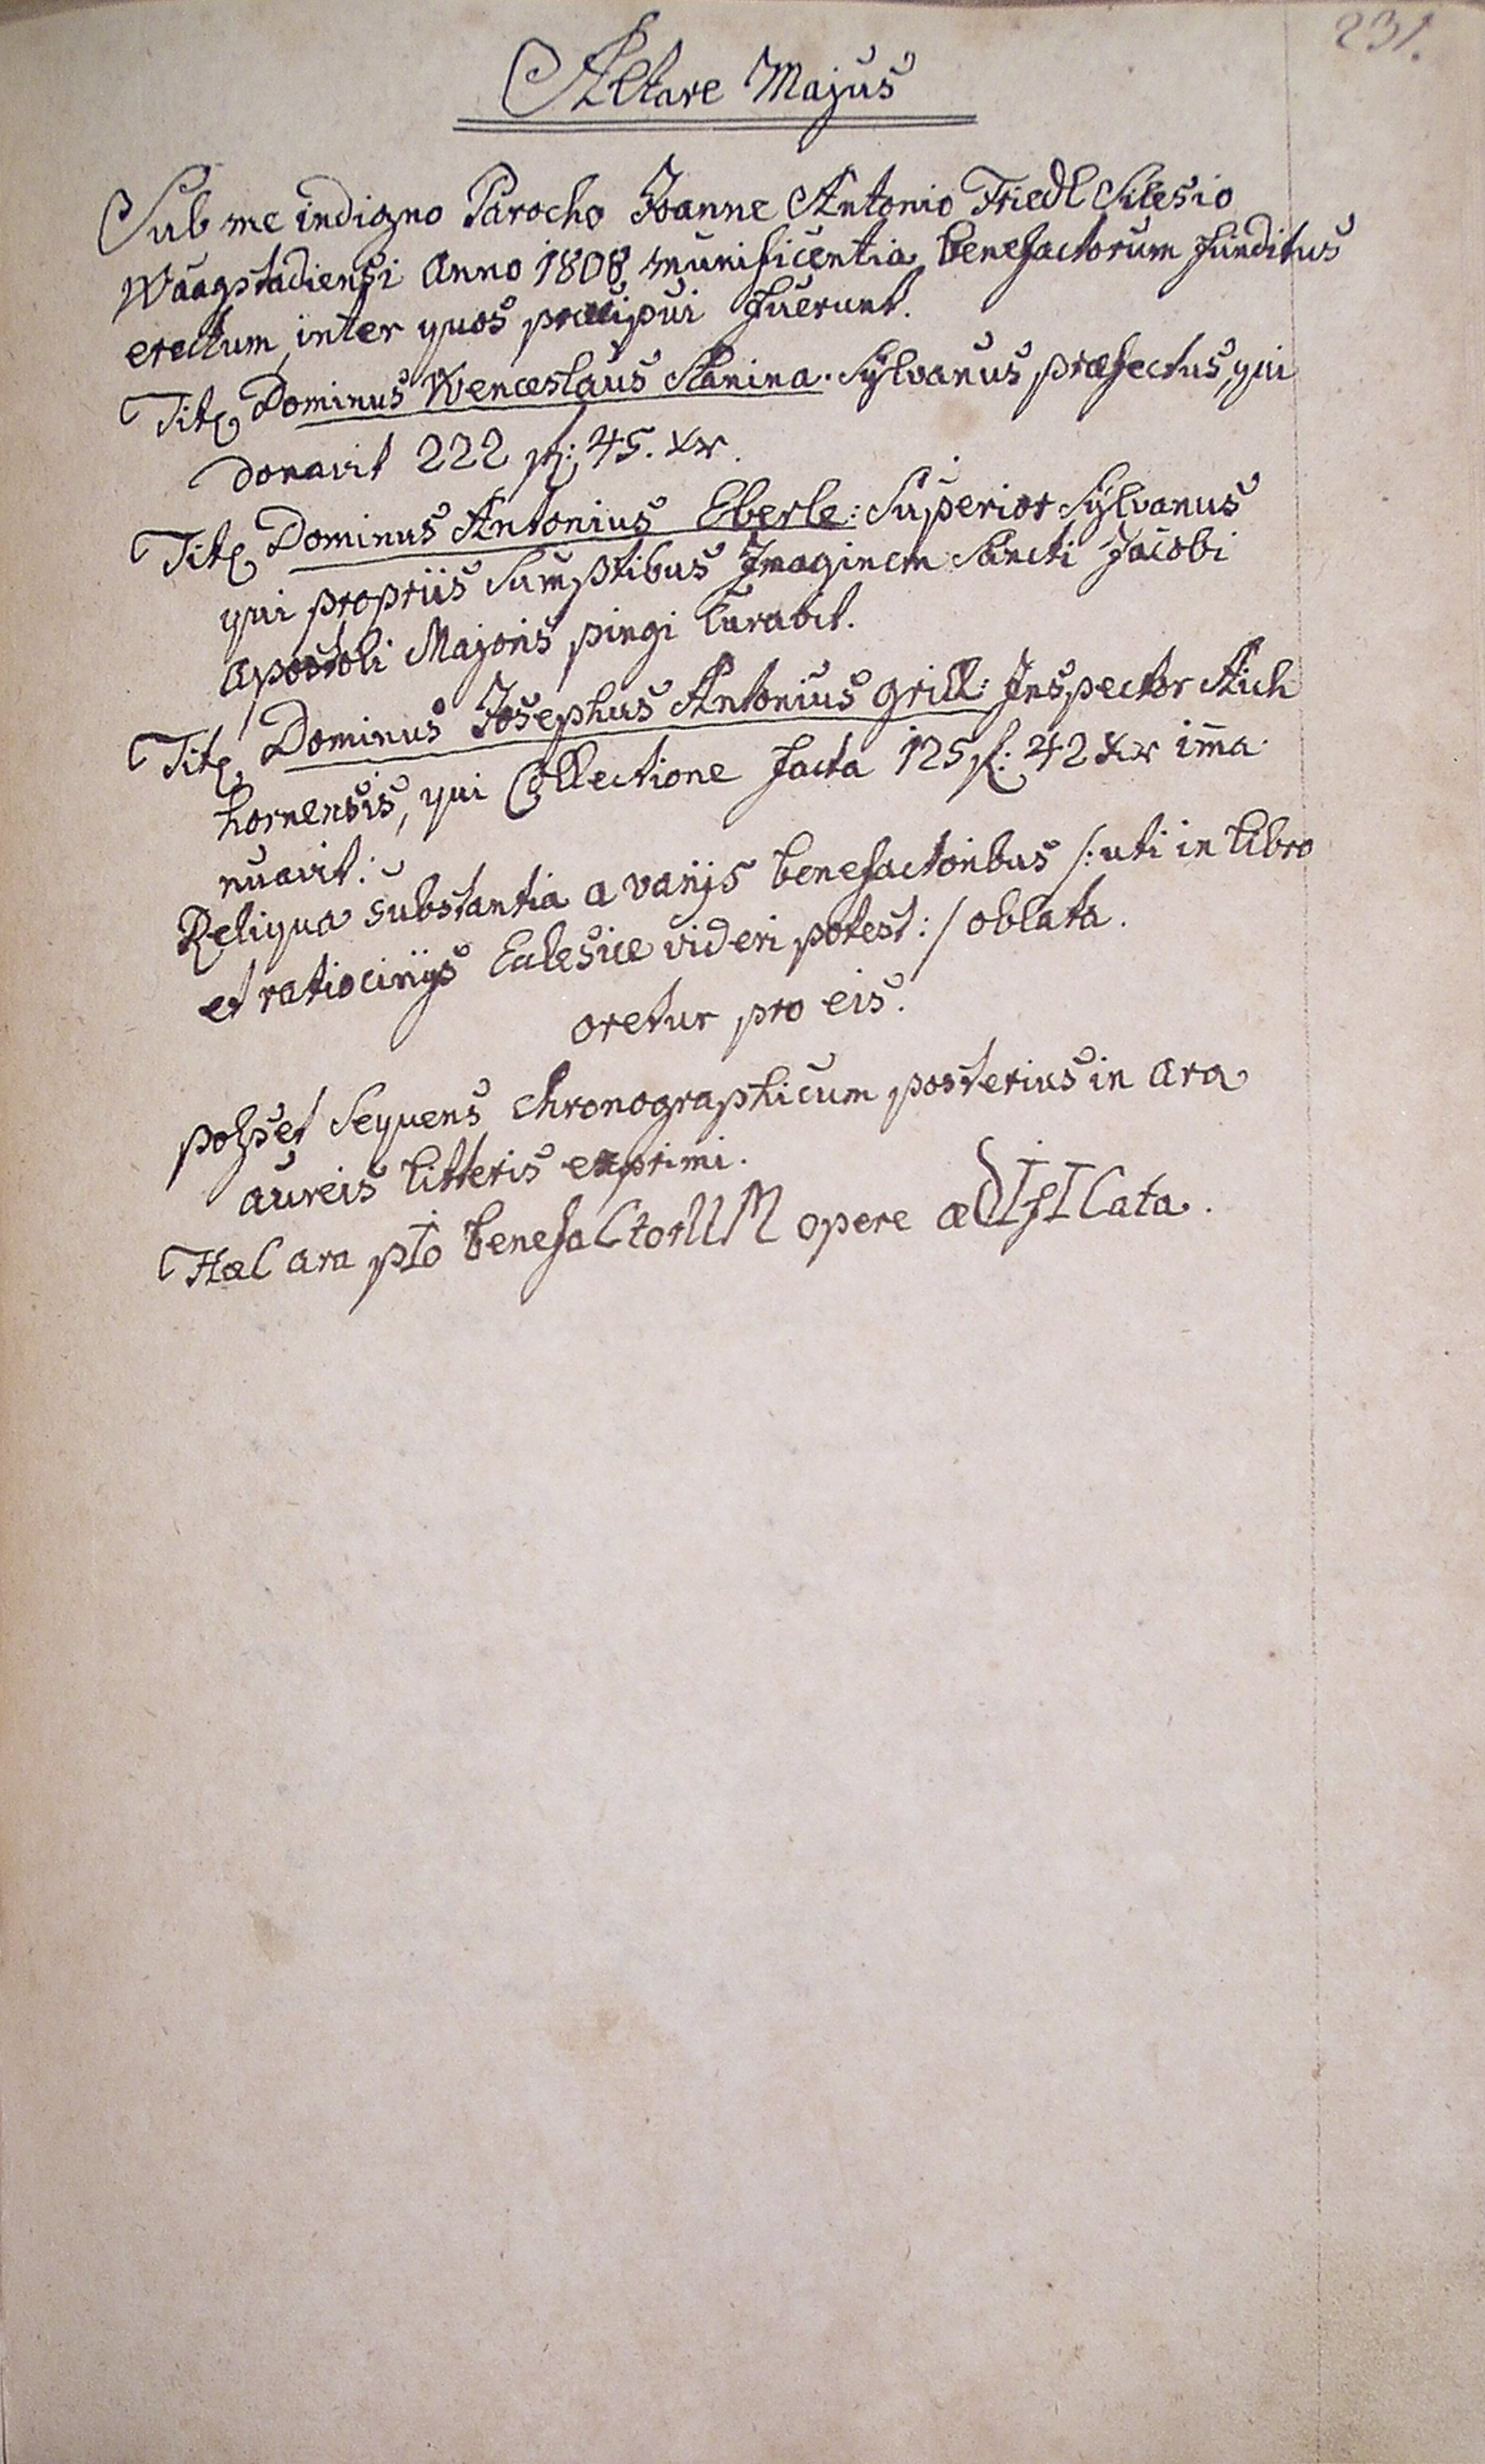 231.
Altare Majus
Sub me indigno Parocho Joanne Antonio Friedl Silesio
Waagstadiensi Anno 1808 munificentia benefactorum funditus
erectum, inter quos praecipui fuerunt.
Titl Dominus Wenceslaus Stanina. Sÿlvanus praefectus, qui
donavit 222 fl: 45. xr.
Titl Dominus Antonius Eberle: Superior Sÿlvanus
qui propriis Sumptibus Imaginem Sancti Jacobi
apostoli Majoris pingi curavit.
Titl Dominus Josephus Antonius Grill: Inspector Aich
hornensis, qui Collectione facta 125 fl: 42 xr im̄a
nuavit:
Reliqua substantia a varijs benefactoribus /: uti in libro
et ratiocinijs Eclesiae videri potest :/ oblata.
oretur pro eis.
posset Sequens chronographicum posterius in ara
aureis litteris exprimi.
HaeC ara pIo benefaCtorUM opere aeDIfICata.